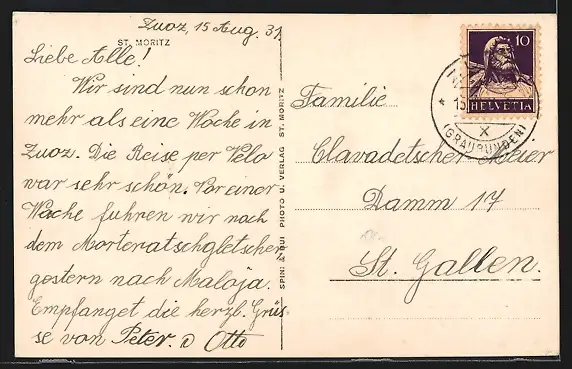 Zuoz, 15 Aug. 31.
ST. MORITZ
Liebe Alle!
Wir sind nun schon
mehr als eine Woche in
Zuoz. Die Reise per Velo
war sehr schön. Vor einer
Woche fuhren wir nach
dem Morteratschgletscher,
gestern nach Maloja.
Empfanget die herzl. Grüs-
se von Peter. u Otto
PHOTO U. VERLAG ST. MORITZ
10
HELVETIA
15
X
(GRAUBÜNDEN)
Familie
Clavadetscher Meier
Damm 17
St. Gallen.